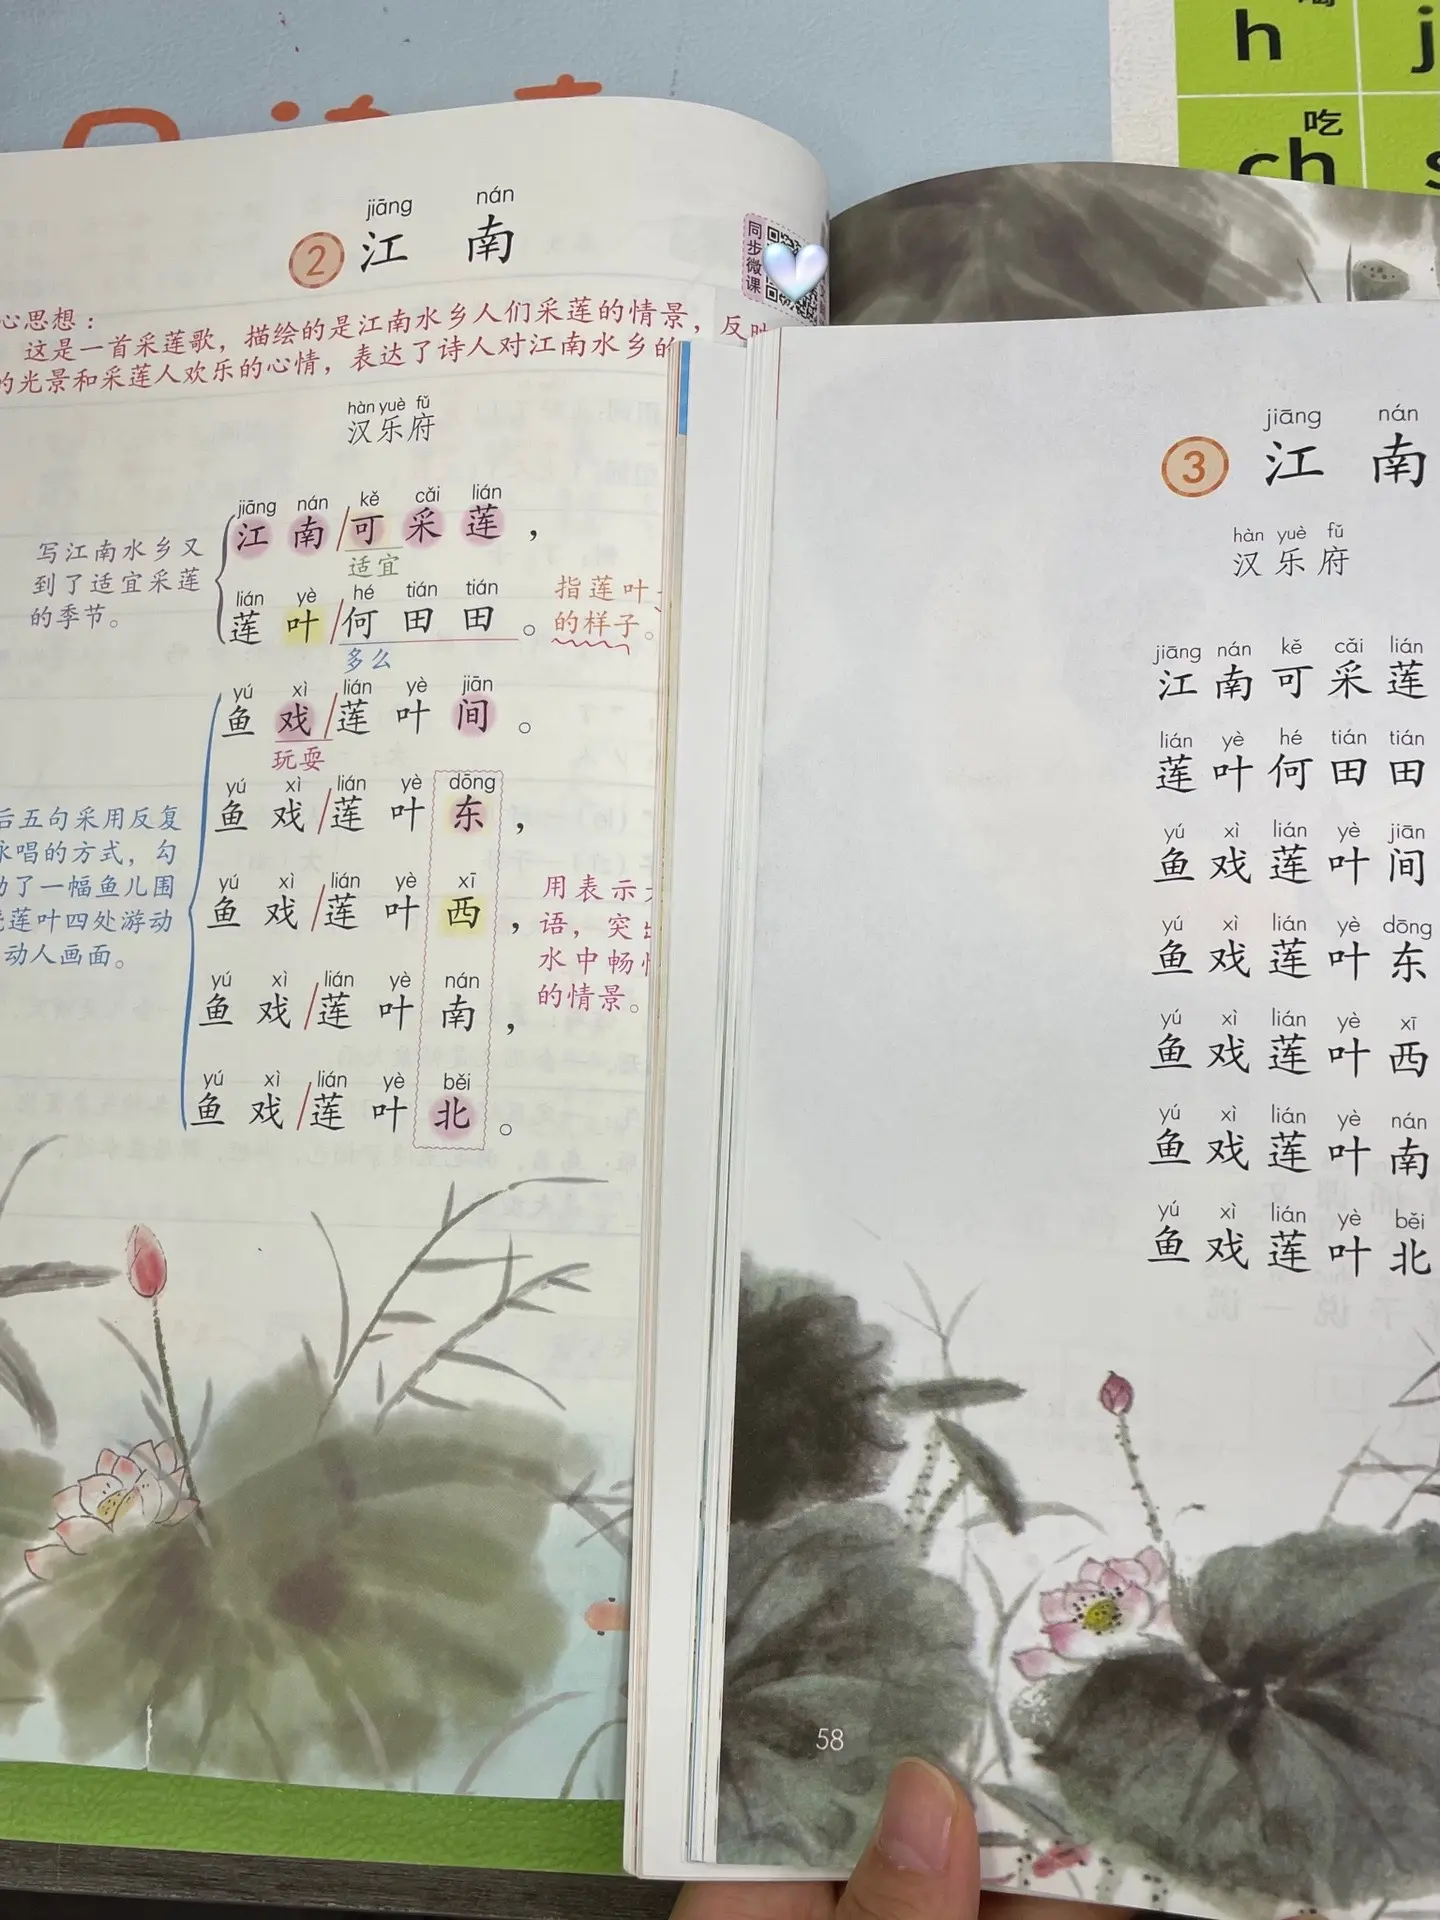 h
j
吃
ch
jiāng nán
② 江 南
同步微课
心思想：
这是一首采莲歌，描绘的是江南水乡人们采莲的情景，反
的光景和采莲人欢乐的心情，表达了诗人对江南水乡的
hàn yuè fǔ
汉乐府
jiāng nán kě cǎi lián
江南/可采莲，
适宜
写江南水乡又
到了适宜采莲
的季节。
lián yè hé tián tián
莲叶/何田田。
多么
指莲叶
的样子。
yú xì lián yè jiān
鱼戏/莲叶间。
玩耍
yú xì lián yè dōng
鱼戏/莲叶东，
yú xì lián yè xī
鱼戏/莲叶西，
yú xì lián yè nán
鱼戏/莲叶南，
yú xì lián yè běi
鱼戏/莲叶北。
后五句采用反复
咏唱的方式，勾
勒了一幅鱼儿围
绕莲叶四处游动
动人画面。
用表示
语，突出
水中畅
的情景。
jiāng nán
③ 江 南
hàn yuè fǔ
汉乐府
jiāng nán kě cǎi lián
江南可采莲
lián yè hé tián tián
莲叶何田田
yú xì lián yè jiān
鱼戏莲叶间
yú xì lián yè dōng
鱼戏莲叶东
yú xì lián yè xī
鱼戏莲叶西
yú xì lián yè nán
鱼戏莲叶南
yú xì lián yè běi
鱼戏莲叶北
58